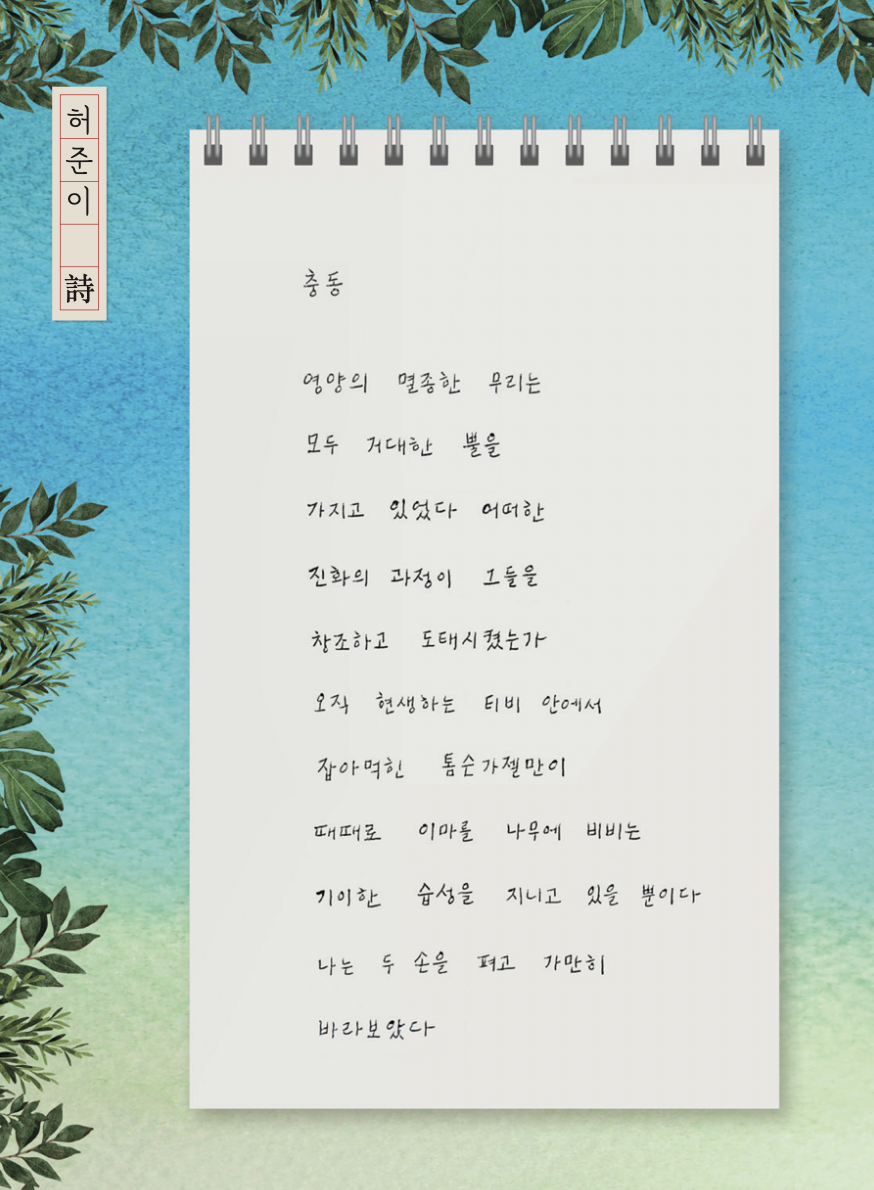 허준이 詩
충동
영양의 멸종한 무리는
모두 거대한 뿔을
가지고 있었다 어떠한
진화의 과정이 그들을
창조하고 도태시켰는가
오직 현생하는 티비 안에서
잡아먹힌 톰슨가젤만이
때때로 이마를 나무에 비비는
기이한 습성을 지니고 있을 뿐이다
나는 두 손을 펴고 가만히
바라보았다